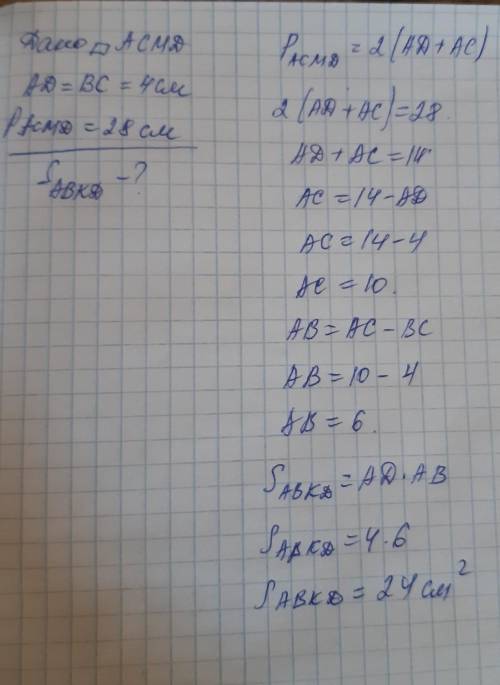 Дано □ ACMD
AD = BC = 4см
P ACMD = 28 см
S ABKD - ?
P ACMD = 2(AD + AC)
2(AD + AC) = 28.
AD + AC = 14
AC = 14 - AD
AC = 14 - 4
AC = 10.
AB = AC - BC
AB = 10 - 4
AB = 6.
S ABKD = AD · AB
S ABKD = 4 · 6
S ABKD = 24 см²